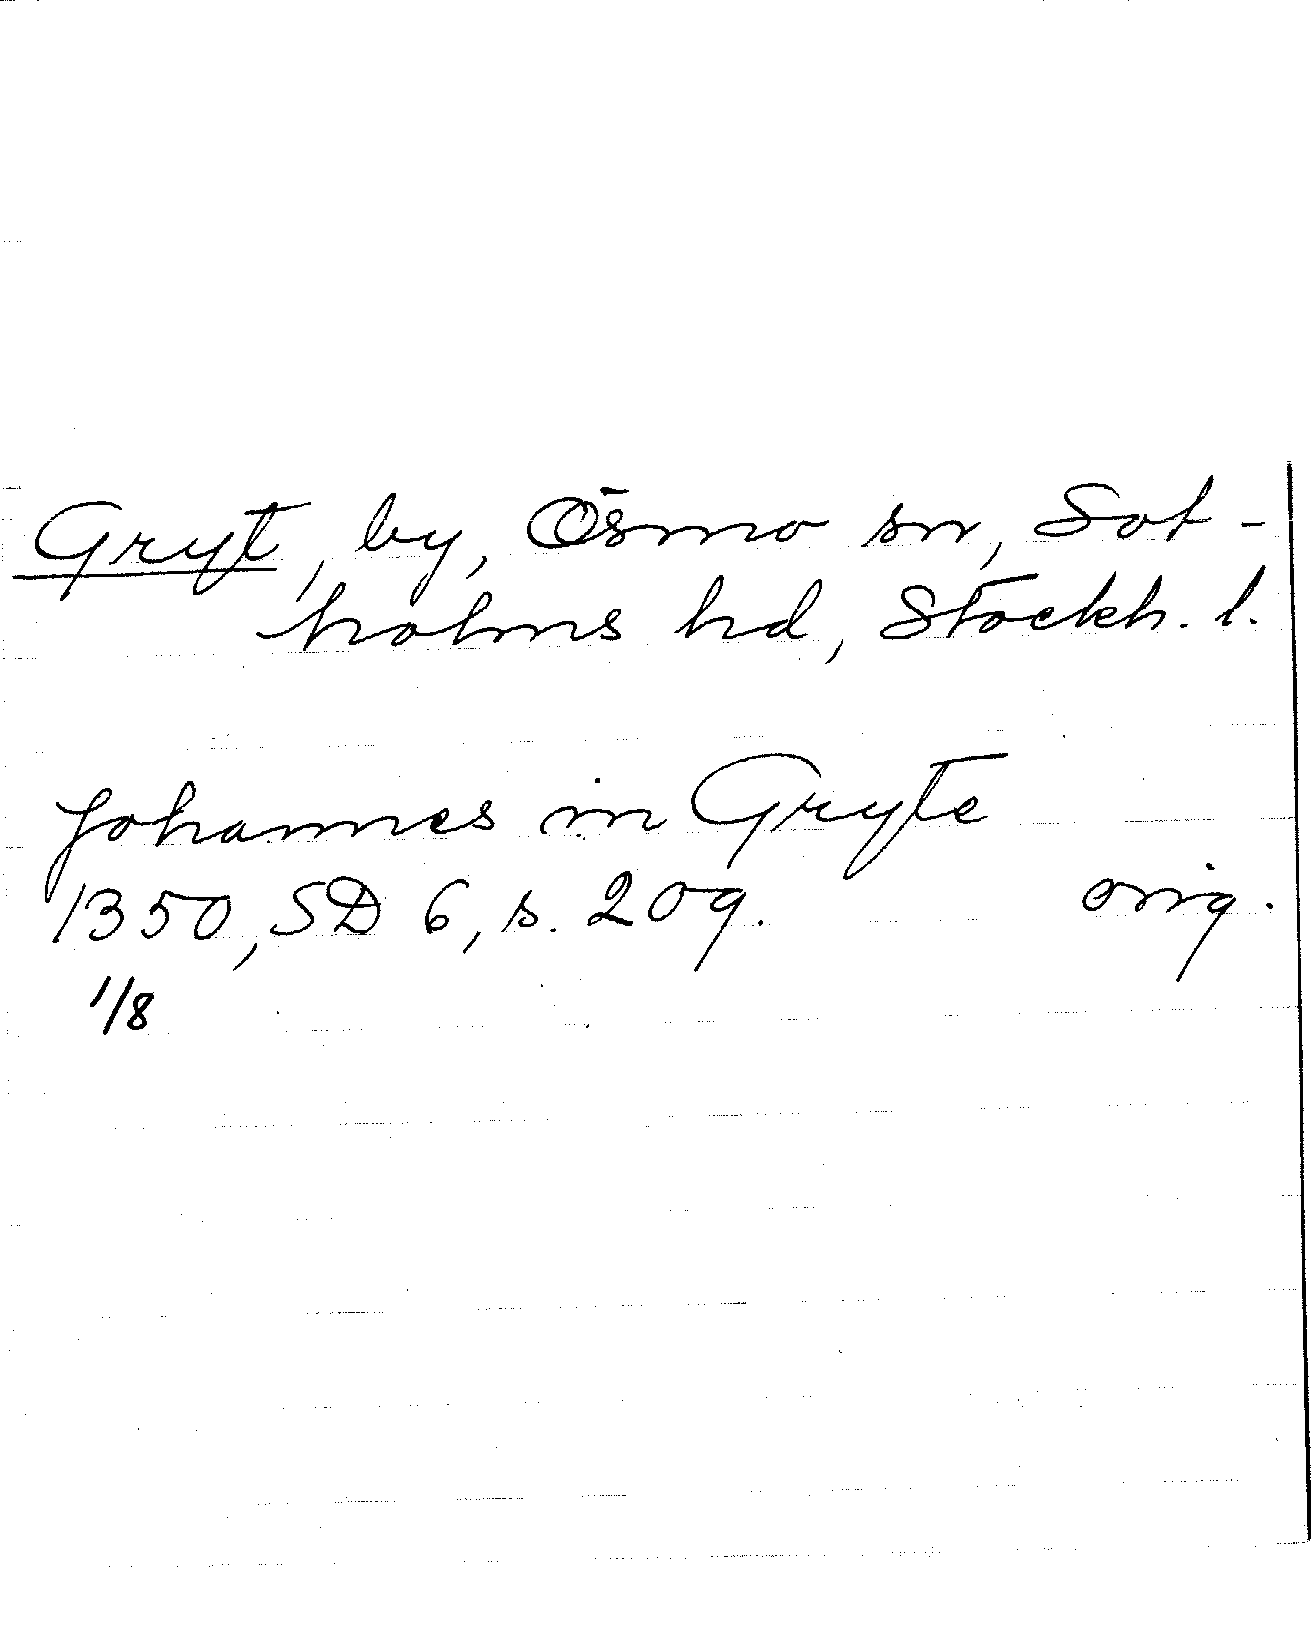 Gryt, by, Ösmo sn, Sot-
holms hd, Stockh. l.
Johannes in Gryte
1350, SD 6, s. 209. orig.
1/8